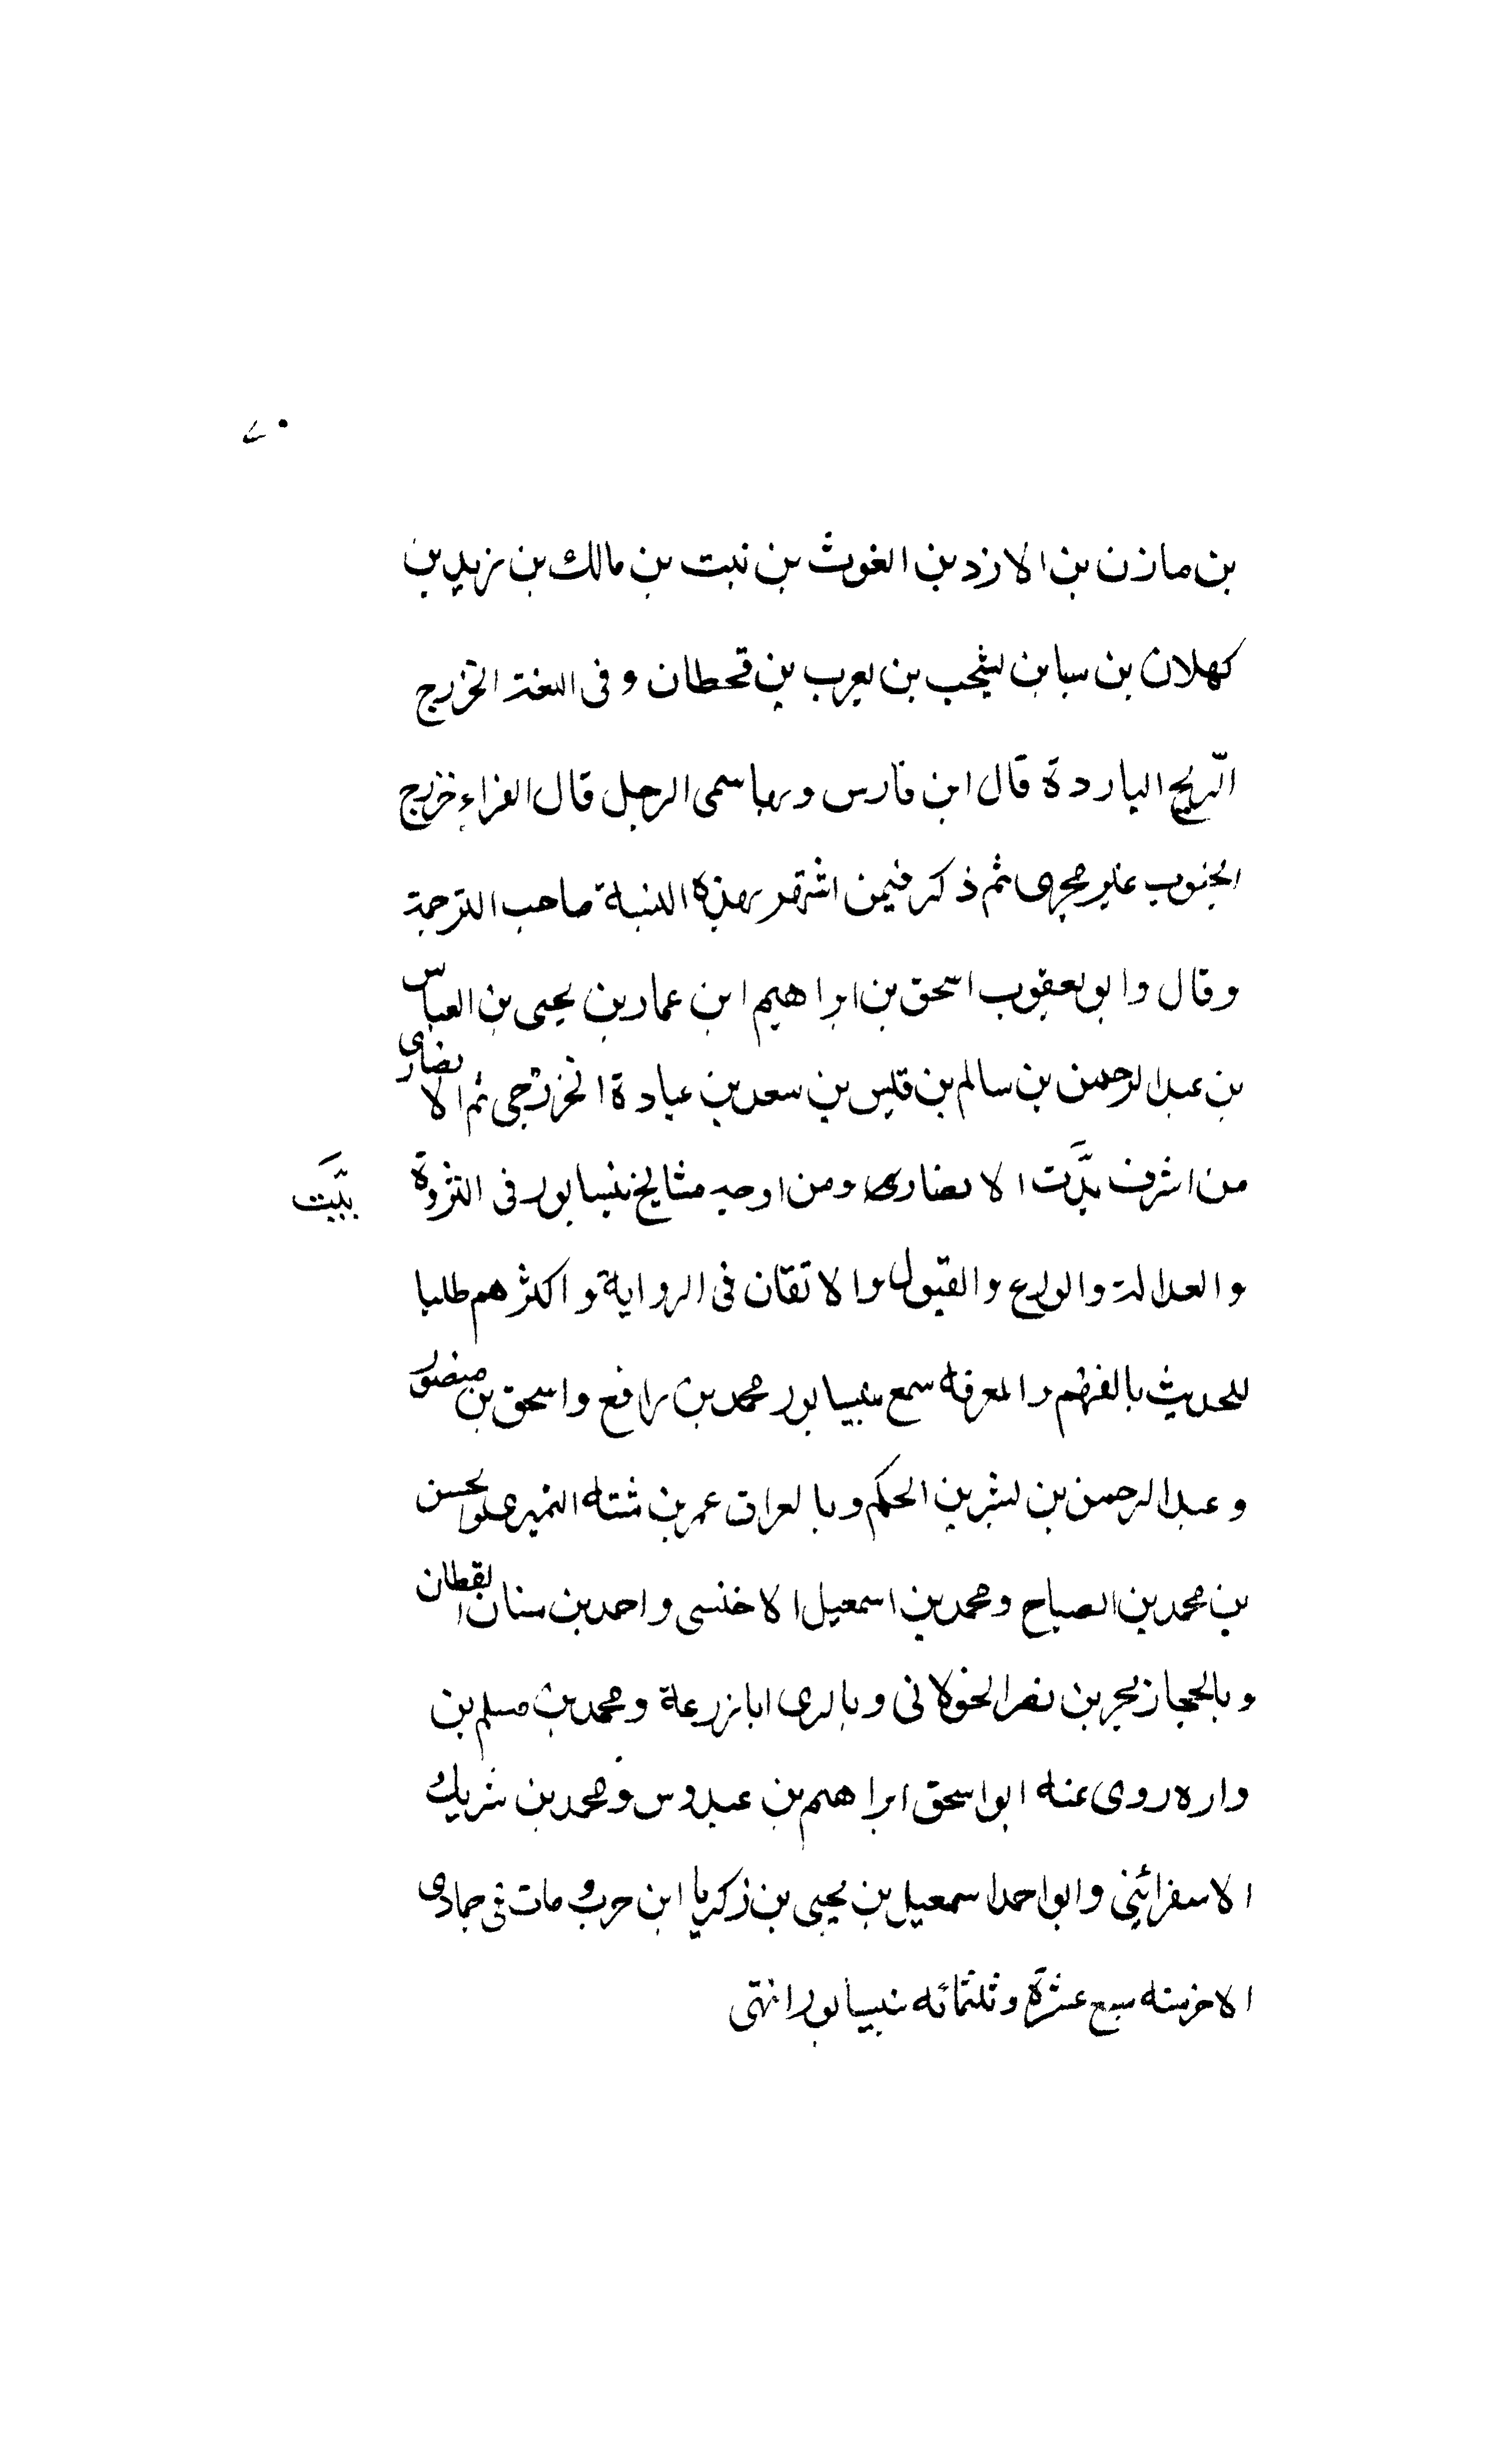 بن مازن بن الازد بن الغوث بن نبت بن مالك بن زيد بن
كهلان بن سبا بن يشجب بن يعرب بن قحطان وفى اللغة الخزرج
الريح الباردة قال ابن فارس وبها سمى الرجل قال الفراء خزرج
الجنوب غير مجرى ثم ذكر فيمن اشتهر بهذه النسبة صاحب الترجمة
وقال وابو يعقوب اسحق بن ابراهيم ابن عمار بن يحيى بن العباس
بن عبد الرحمن بن سالم بن قيس بن سعد بن عبادة الخزرجى ثم الانصارى
من اشرف بيت الانصارى ومن اوحد مشايخ نيسابور فى الثروة
بيت
والعدالة والورع والقبول والاتقان فى الرواية واكثرهم طلبا
للحديث بالفهم والمعرفه سمع بنيسابور محمد بن رافع واسحق بن منصور
وعبد الرحمن بن بشر بن الحكم وبالعراق عمر بن شته النميرى والحسن
بن محمد بن الصباح ومحمد بن اسمعيل الاخنسى واحمد بن سنان القطان
وبالحجاز بحر بن نصر الخولانى وبالرى ابا زرعة ومحمد بن مسلم بن
واره روى عنه ابو اسحق ابراهيم بن عبدوس ومحمد بن شريك
الاسفرائينى وابو احمد اسمعيل بن يحيى بن زكريا ابن حرب ومات فى جمادى
الاخر سنه سبع عشرة وثلثمائه بنيسابور انتهى